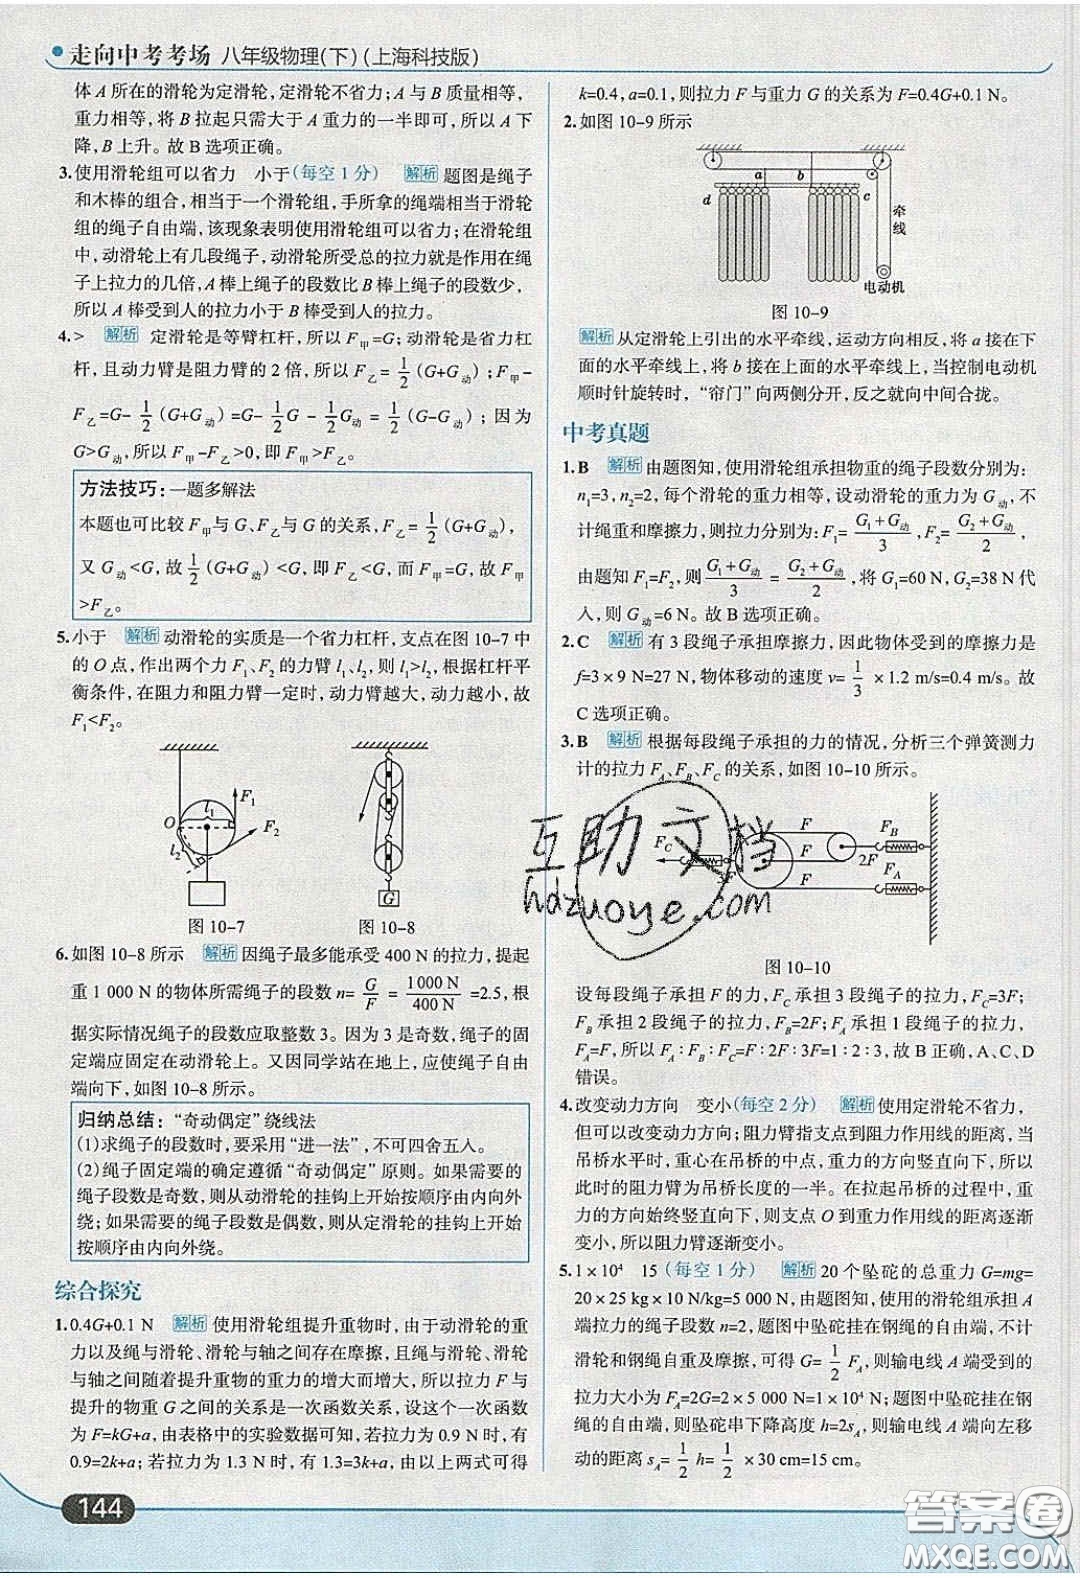 走向中考考场 八年级物理(下)(上海科技版)
体 A 所在的滑轮为定滑轮,定滑轮不省力;A与B质量相等,
重力相等,将 B 拉起只需大于 A 重力的一半即可,所以 A 下
降,B 上升。故 B 选项正确。
3.使用滑轮组可以省力 小于(每空 1 分) 解析 题图是绳子
和木棒的组合,相当于一个滑轮组,手所拿的绳端相当于滑轮
组的绳子自由端,该现象表明使用滑轮组可以省力;在滑轮组
中,动滑轮上有几段绳子,动滑轮所受总的拉力就是作用在绳
子上拉力的几倍,A 棒上绳子的段数比 B 棒上绳子的段数少,
所以 A 棒受到人的拉力小于 B 棒受到人的拉力。
4.> 解析 定滑轮是等臂杠杆,所以 F甲=G;动滑轮是省力杠
杆,且动力臂是阻力臂的 2 倍,所以 F乙=1/2(G+G动);F甲-
F乙=G-1/2(G+G动)=G-1/2G-1/2G动=1/2(G-G动);因为
G>G动,所以 F甲-F乙>0,即 F甲>F乙。
方法技巧:一题多解法
本题也可比较 F甲与 G、F乙与 G 的关系,F乙=1/2(G+G动),
又 G动<G,故1/2(G+G动)<G,即 F乙<G,而 F甲=G,故 F甲
>F乙。
5.小于 解析 动滑轮的实质是一个省力杠杆,支点在图 10-7 中
的 O 点,作出两个力 F₁、F₂ 的力臂 l₁、l₂,则 l₁>l₂,根据杠杆平
衡条件,在阻力和阻力臂一定时,动力臂越大,动力越小,故
F₁<F₂。
O l₁ F₁ F₂ l₂
G
图 10-7 图 10-8
6.如图 10-8 所示 解析 因绳子最多能承受 400 N 的拉力,提起
重 1 000 N 的物体所需绳子的段数 n=G/F=1 000 N/400 N=2.5,根
据实际情况绳子的段数应取整数 3。因为 3 是奇数,绳子的固
定端应固定在动滑轮上。又因同学站在地上,应使绳子自由
端向下,如图 10-8 所示。
归纳总结:“奇动偶定”绕线法
(1)求绳子的段数时,要采用“进一法”,不可四舍五入。
(2)绳子固定端的确定遵循“奇动偶定”原则。如果需要的
绳子段数是奇数,则从动滑轮的挂钩上开始按顺序由内向外
绕;如果需要的绳子段数是偶数,则从定滑轮的挂钩上开始
按顺序由内向外绕。
综合探究
1.0.4G+0.1 N 解析 使用滑轮组提升重物时,由于动滑轮的重
力以及绳与滑轮、滑轮与轴之间存在摩擦,且绳与滑轮、滑轮
与轴之间的摩擦随着提升重物的重力的增大而增大,所以拉力 F 与
提升的物重 G 之间的关系是一次函数关系,设这个一次函数
为 F=kG+a,由表格中的实验数据可知,若拉力为 0.9 N 时,有
0.9=2k+a;若拉力为 1.3 N 时,有 1.3=3k+a,由以上两式可得
144
k=0.4,a=0.1,则拉力 F 与重力 G 的关系为 F=0.4G+0.1 N。
2.如图 10-9 所示
a b c d 牵线 电动机
图 10-9
解析 从定滑轮上引出的水平牵线,运动方向相反,将 a 接在下
面的水平牵线上,将 b 接在上面的水平牵线上,当控制电动机
顺时针旋转时,“帘门”向两侧分开,反之就向中间合拢。
中考真题
1.B 解析 由题图知,使用滑轮组承担物重的绳子段数分别为:
n₁=3,n₂=2,每个滑轮的重力相等,设动滑轮的重力为 G动,不
计绳重和摩擦力,则拉力分别为:F₁=(G₁+G动)/3,F₂=(G₂+G动)/2,
由题知 F₁=F₂,则(G₁+G动)/3=(G₂+G动)/2,将 G₁=60 N,G₂=38 N代
入,则 G动=6 N。故 B 选项正确。
2.C 解析 有 3 段绳子承担摩擦力,因此物体受到的摩擦力是
f=3×9 N=27 N,物体移动的速度 v=1/3×1.2 m/s=0.4 m/s。故
C 选项正确。
3.B 解析 根据每段绳子承担的力的情况,分析三个弹簧测力
计的拉力 F_A、F_B、F_C 的关系,如图 10-10 所示。
F_C 3F F F F 2F F_B F_A
互助文档
hdzuoye.com
图 10-10
设每段绳子承担 F 的力,F_C 承担 3 段绳子的拉力,F_C=3F;
F_B 承担 2 段绳子的拉力,F_B=2F;F_A 承担一段绳子的拉力,
F_A=F,所以 F_A∶F_B∶F_C=F∶2F∶3F=1∶2∶3,故 B 正确,A、C、D
错误。
4.改变动力方向 变小(每空 2 分) 解析 使用定滑轮不省力,
但可以改变动力方向;阻力臂指支点到阻力作用线的距离,当
吊桥水平时,重心在吊桥的中点,重力的方向竖直向下,所以
此时的阻力臂为吊桥长度的一半。在拉起吊桥的过程中,重
力的方向始终竖直向下,则支点 O 到重力作用线的距离逐渐
变小,所以阻力臂逐渐变小。
5.1×10⁴ 15(每空 1 分) 解析 20 个坠砣的总重力 G=mg=
20×25 kg×10 N/kg=5 000 N,由题图知,使用的滑轮组承担 A
端拉力的绳子段数 n=2,题图中坠砣挂在钢绳的自由端,不计
滑轮和钢绳自重及摩擦,可得 G=1/2 F_A,则输电线 A 端受到的
拉力大小为 F_A=2G=2×5 000 N=1×10⁴ N;题图中坠砣挂在钢
绳的自由端,则坠砣串下降高度 h=2s_A,则输电线 A 端向左移
动的距离 s_A=1/2h=1/2×30 cm=15 cm。
答案圈
MXQE.COM